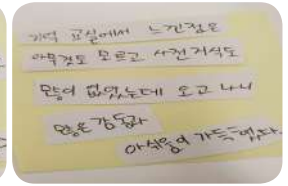 기억 교실에서 느낀점은
아무것도 모르고 사전지식도
없었는데 오고 나니
많은 감동과
아쉬움이 가득했다.